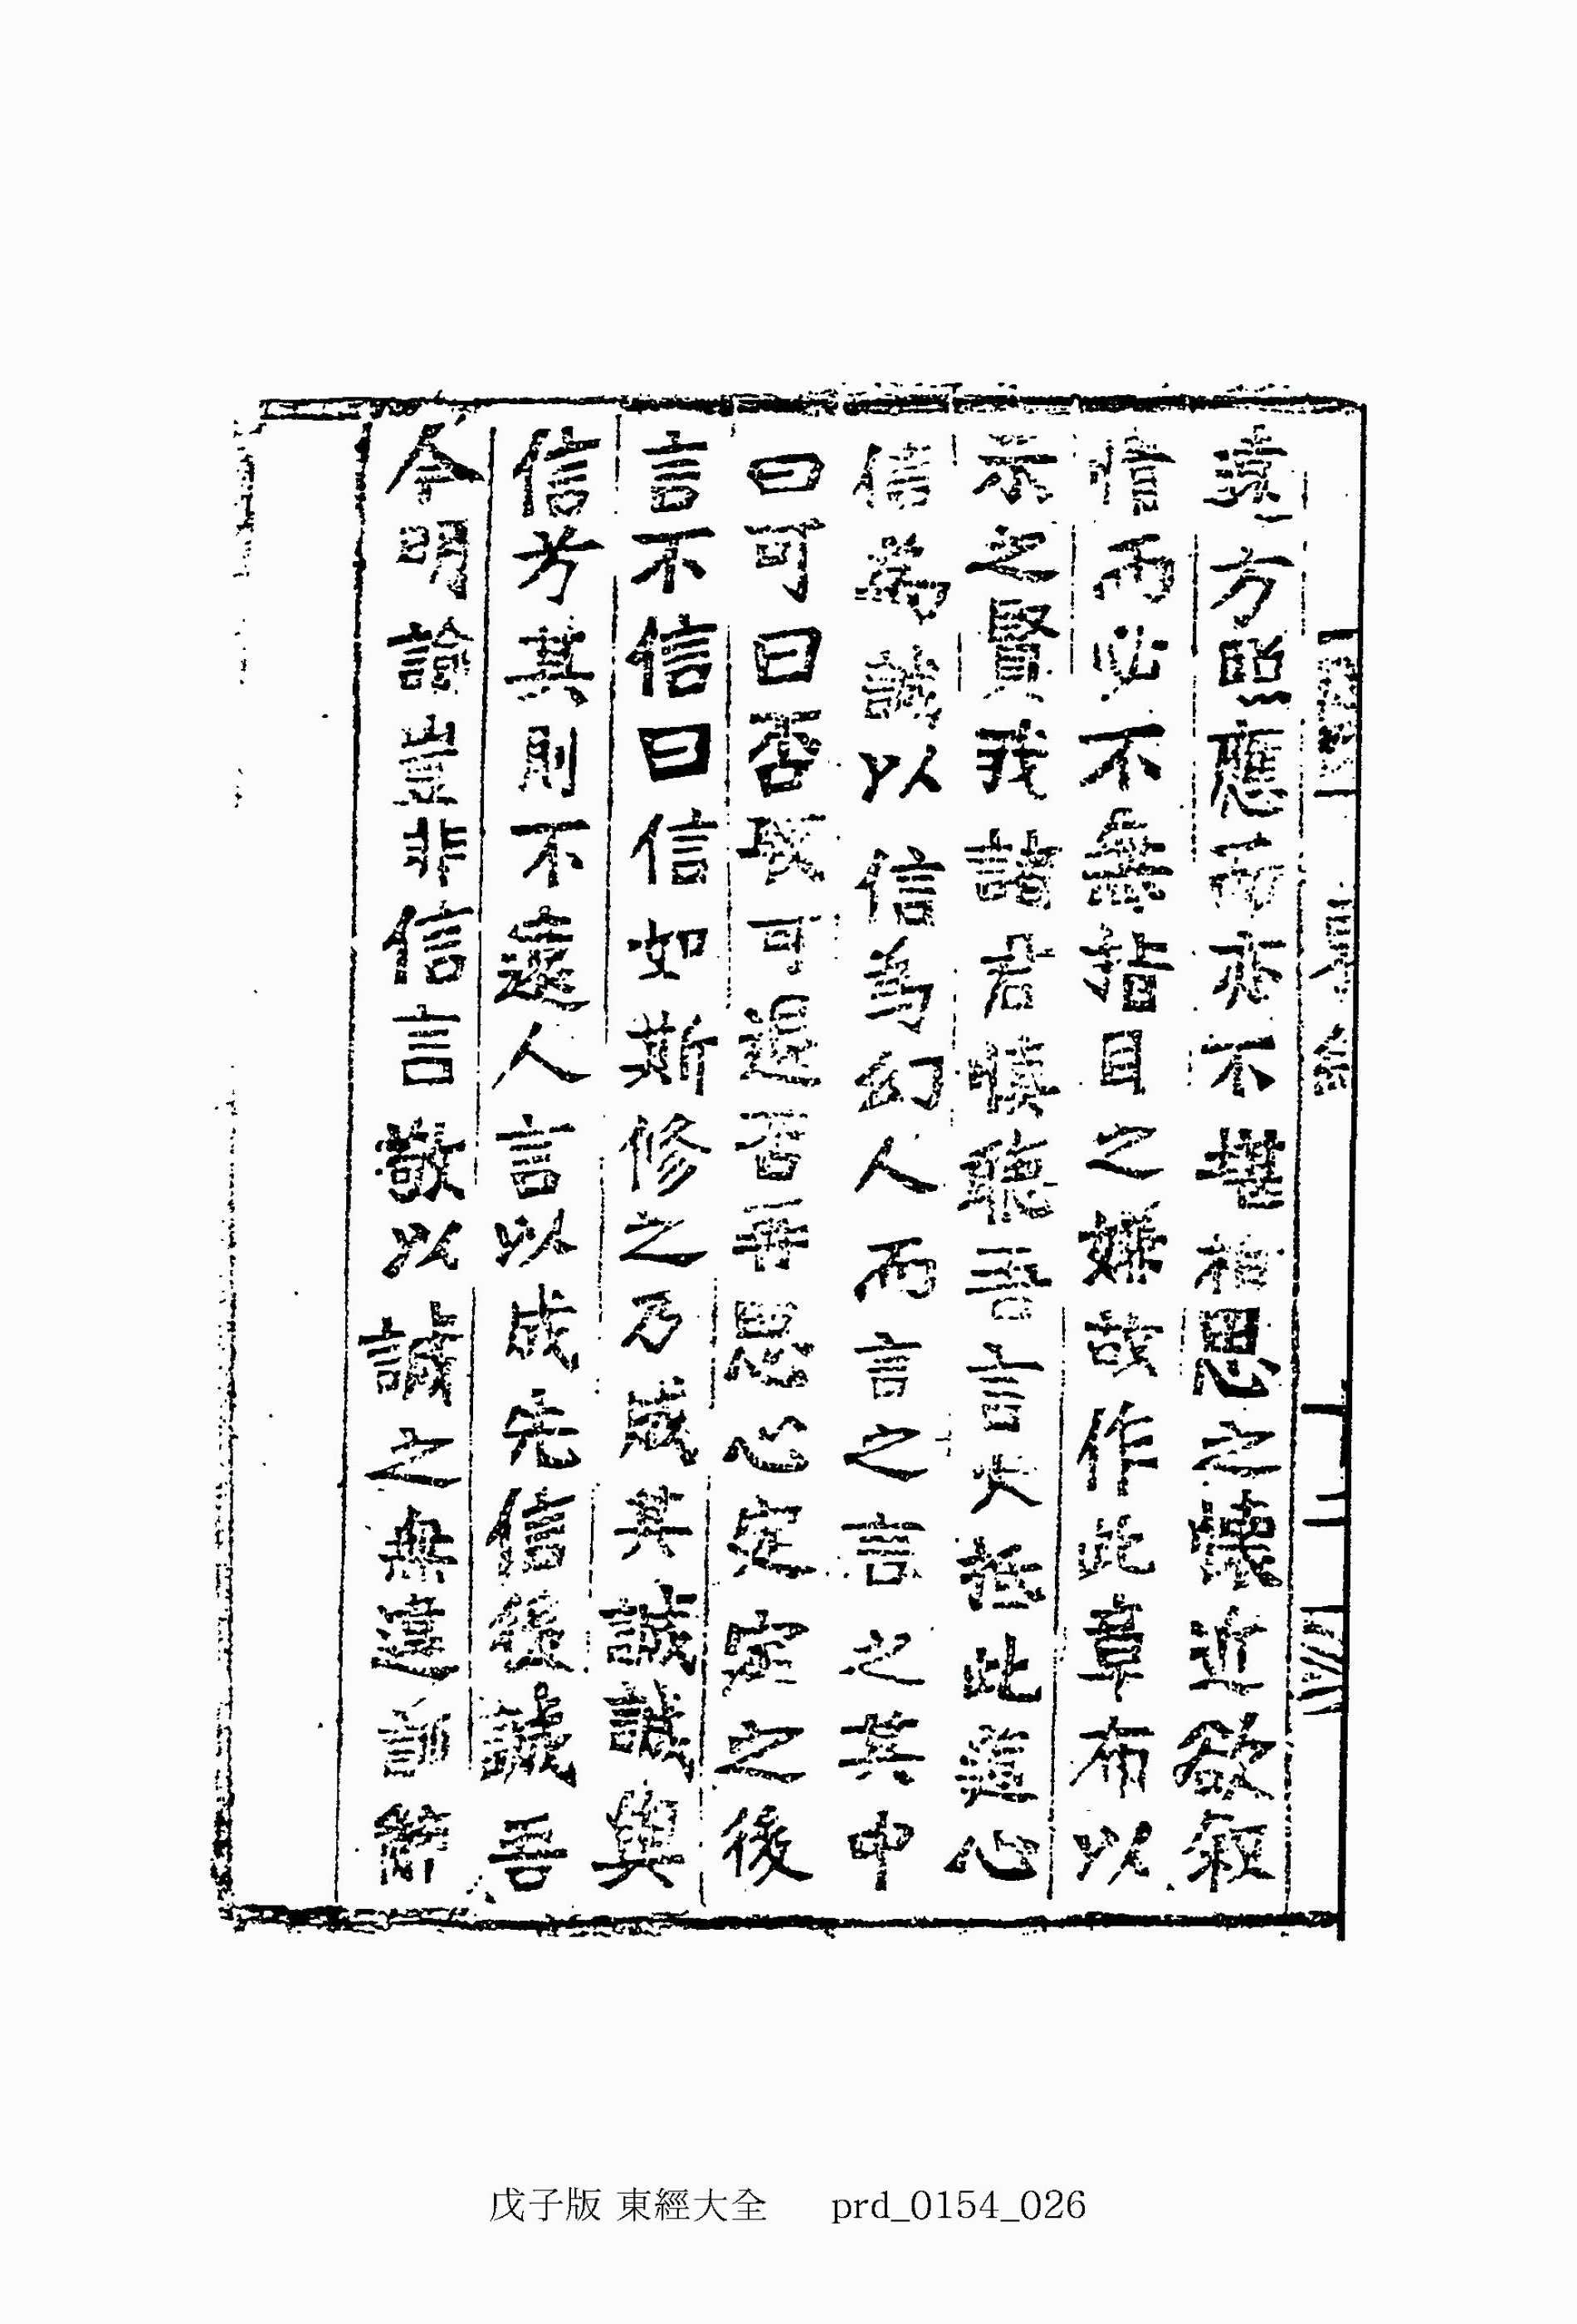 遠方照應而亦不堪相思之懷近欲叙
情而必不無指目之嫌故作此章布以
示之賢我諸君愼聽吾言大抵此道心
信爲誠以信爲幻人而言之言之其中
曰可曰否取可退否再思心定定之後
言不信曰信如斯修之乃成其誠誠與
信芳其則不遠人言以成先信後誠吾
今明諭豈非信言敬以誠之無違訓辭
戊子版 東經大全 prd_0154_026